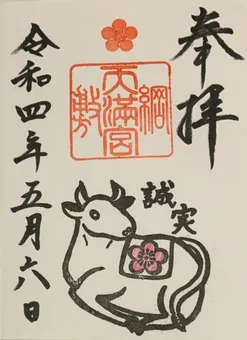 奉拝
綱敷天満宮
誠実
令和四年五月六日